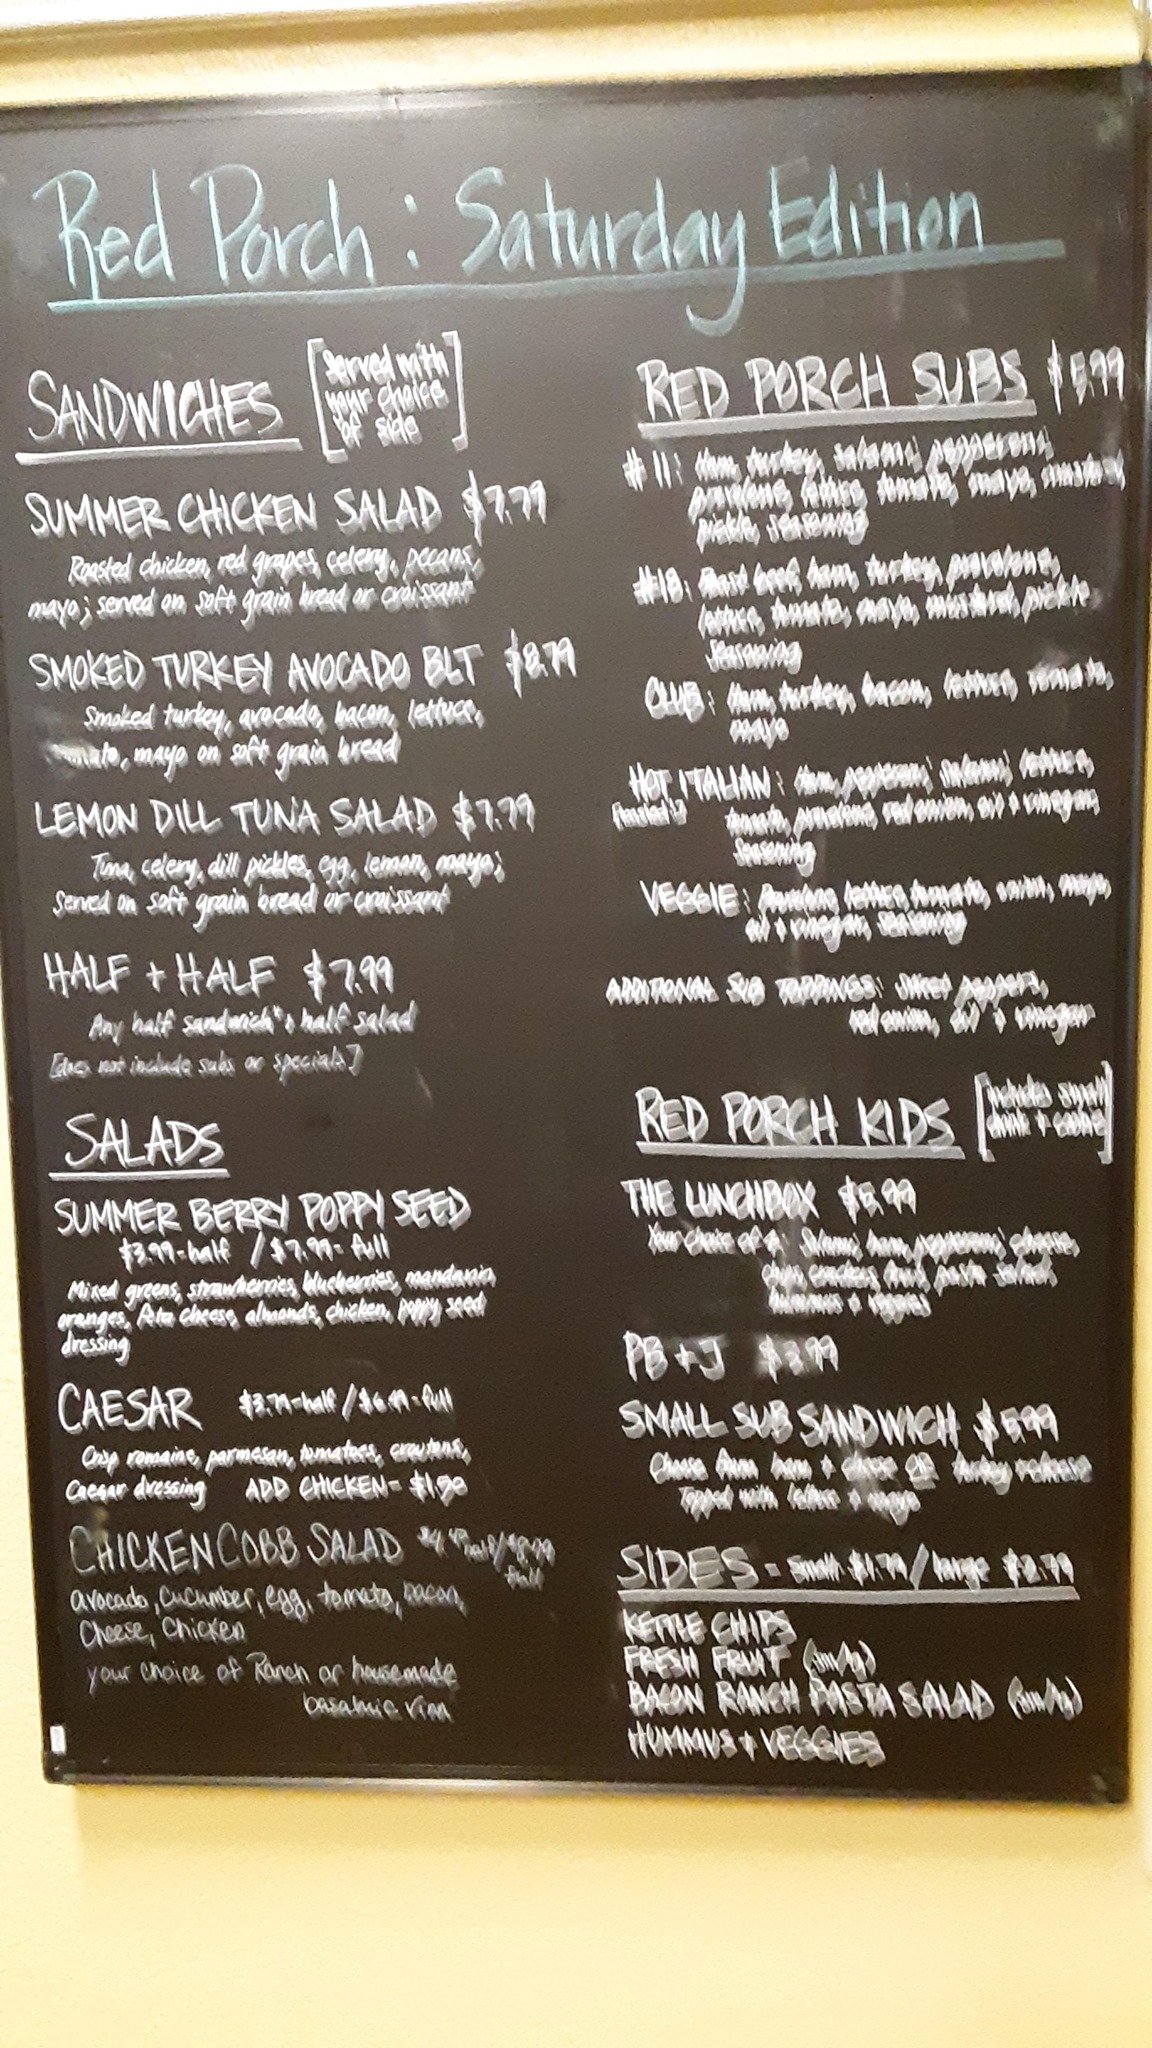 Red Porch: Saturday Edition
SANDWICHES
[served with
your choice
of side]
SUMMER CHICKEN SALAD $7.79
Roasted chicken, red grapes, celery, pecans,
mayo; served on soft grain bread or croissant
SMOKED TURKEY AVOCADO BLT $8.79
Smoked turkey, avocado, bacon, lettuce,
mayo on soft grain bread
LEMON DILL TUNA SALAD $7.79
Tuna, celery, dill pickles, egg, lemon, mayo;
Served on soft grain bread or croissant
HALF + HALF $7.99
Any half sandwich + half salad
[does not include subs or specials]
SALADS
SUMMER BERRY POPPY SEED
$3.99-half / $7.99-full
Mixed greens, strawberries, blueberries, mandarin
oranges, feta cheese, almonds, chicken, poppy seed
dressing
CAESAR $3.79-half / $6.49-full
Crisp romaine, parmesan, tomatoes, croutons,
Caesar dressing ADD CHICKEN-
CHICKEN COBB SALAD
half/
full
avocado, cucumber, egg, tomato, bacon,
Cheese, Chicken
your choice of Ranch or housemade
basalmic vin
RED PORCH SUBS
#11: Ham, turkey, salami, pepperoni,
provolone, lettuce, tomato, mayo, mustard,
pickle, seasoning
Roast beef, ham, turkey, provolone,
lettuce, tomato, mayo, mustard, pickle
seasoning
CLUB: Ham, turkey, bacon, lettuce, tomato,
mayo
HOT ITALIAN: Ham, pepperoni, salami, lettuce,
tomato, provolone, red onion, oil + vinegar,
seasoning
VEGGIE: Provolone, lettuce, tomato, onion, mayo,
oil + vinegar, seasoning
ADDITIONAL SUB TOPPINGS: sweet peppers,
red onion, oil + vinegar
RED PORCH KIDS
[includes small
drink + cookie]
THE LUNCHBOX
Your choice of 4: Salami, ham, pepperoni, cheese,
chips, crackers, fruit, pasta salad,
hummus + veggies
PB + J $3.99
SMALL SUB SANDWICH
Choose from ham + cheese OR turkey + cheese
Topped with lettuce + mayo
SIDES - small $1.79 / large $2.79
KETTLE CHIPS
FRESH FRUIT
BACON RANCH PASTA SALAD
HUMMUS + VEGGIES